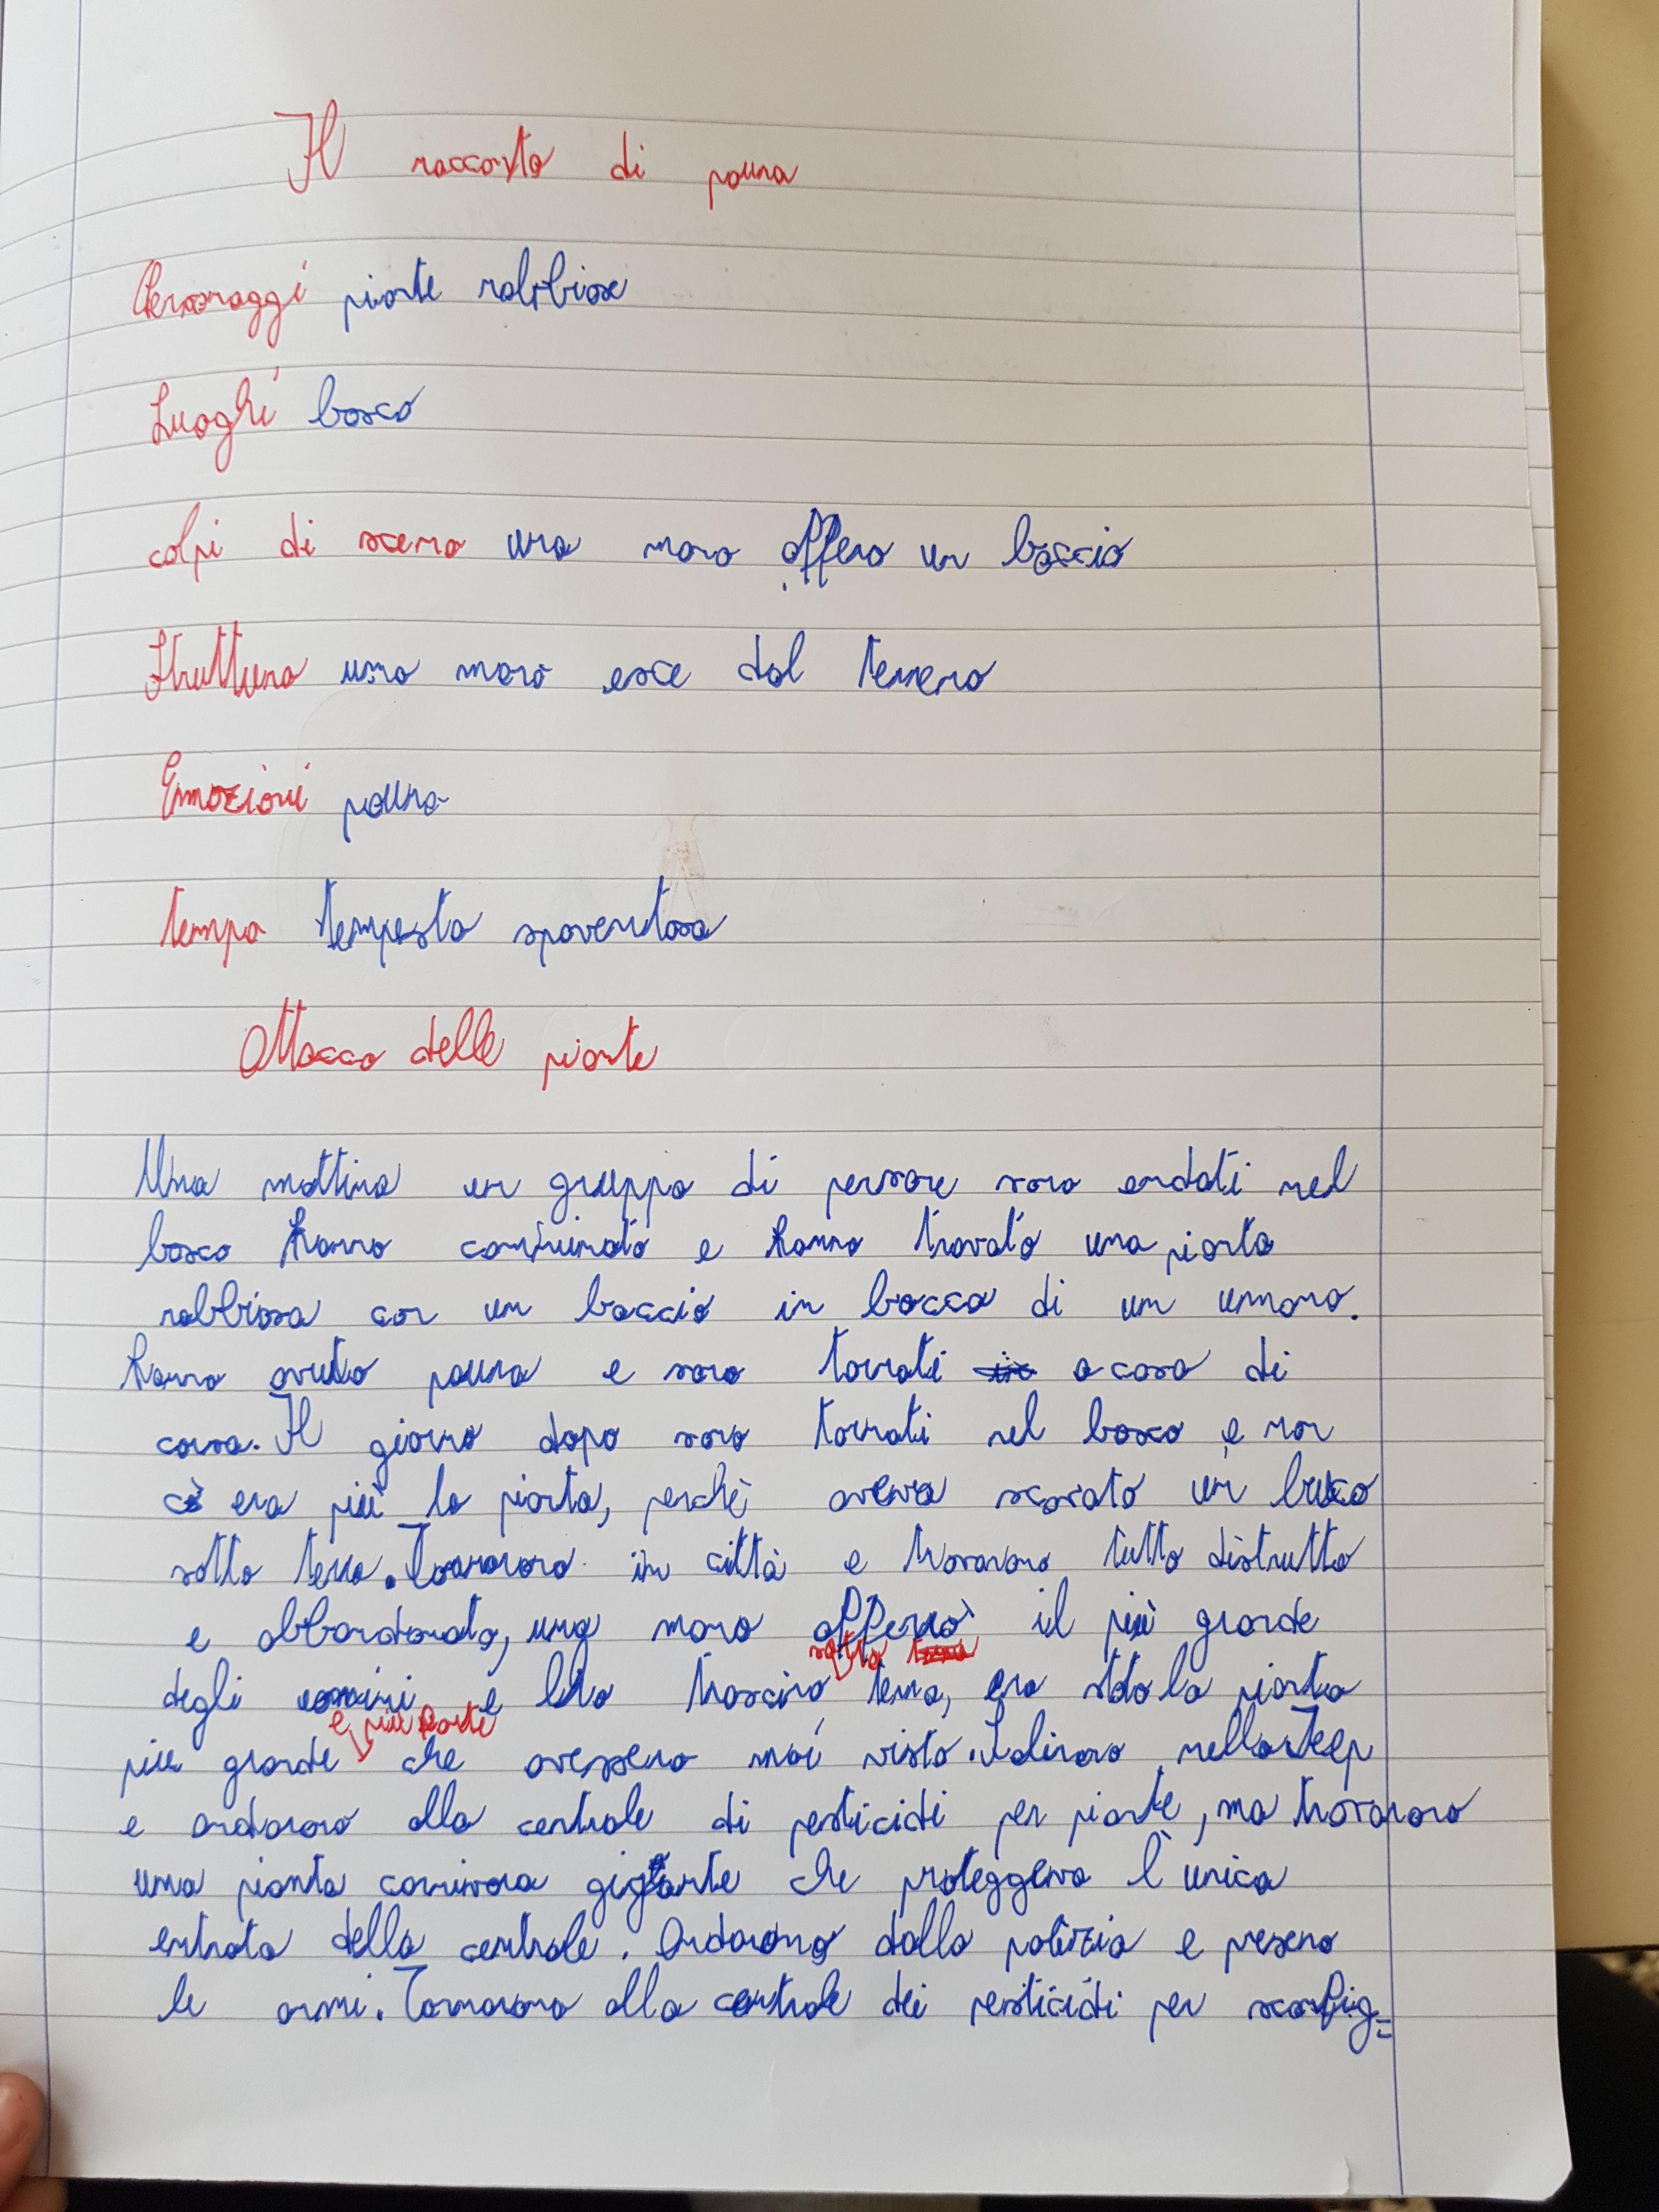 Il racconto di paura
Personaggi piante rabbiose
Luoghi bosco
colpi di scena una mano afferra un braccio
Struttura una mano esce dal terreno
Emozioni paura
tempo tempesta spaventosa
Attacco delle piante
Una mattina un gruppo di persone sono andati nel
bosco hanno camminato e hanno trovato una pianta
rabbiosa con un braccio in bocca di un umano.
hanno avuto paura e sono tornati a casa di
corsa. Il giorno dopo sono tornati nel bosco e non
c'era più la pianta, perchè aveva scavato un buco
sotto terra. Tornarono in città e trovarono tutto distrutto
e abbandonato, una mano afferrò il più grande
sotto
degli uomini e lo trascinò terra, era stata la pianta
e più forte
più grande che avessero mai visto. Salirono nella Jeep
e andarono alla centrale di pesticidi per piante, ma trovarono
una pianta carnivora gigante che proteggeva l'unica
entrata della centrale. Andarono dalla polizia e presero
le armi. Tornarono alla centrale dei pesticidi per sconfig=